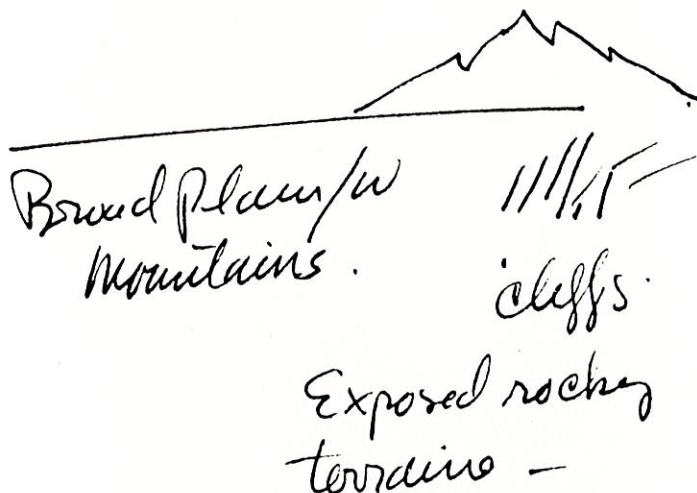 Broad Plain/w
Mountains.
cliffs.
Exposed rocky
terraine -